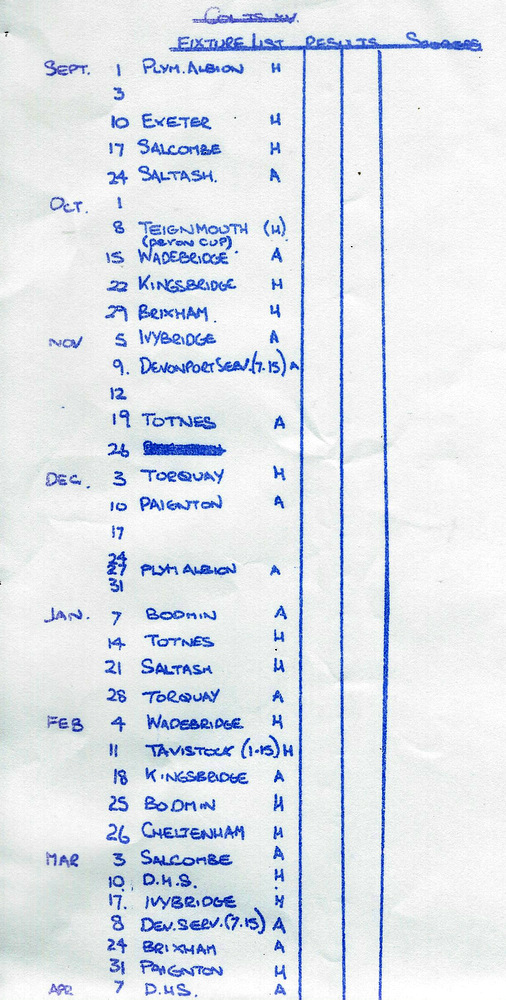 COLTS XV.
FIXTURE LIST RESULTS SCORERS
SEPT. 1 PLYM. ALBION H
3
10 EXETER H
17 SALCOMBE H
24 SALTASH. A
OCT. 1
8 TEIGNMOUTH (H)
(DEVON CUP)
15 WADEBRIDGE A
22 KINGSBRIDGE H
29 BRIXHAM. H
NOV 5 IVYBRIDGE A
9. DEVONPORT SERV.(7.15) A
12
19 TOTNES A
26
DEC. 3 TORQUAY H
10 PAIGNTON A
17
24
27 PLYM ALBION A
31
JAN. 7 BODMIN A
14 TOTNES H
21 SALTASH H
28 TORQUAY A
FEB 4 WADEBRIDGE H
11 TAVISTOCK (1.15) H
18 KINGSBRIDGE A
25 BODMIN H
26 CHELTENHAM H
MAR 3 SALCOMBE A
10. D.H.S. H
17. IVYBRIDGE H
8 DEV. SERV. (7.15) A
24 BRIXHAM A
31 PAIGNTON H
APR 7 D.H.S. A